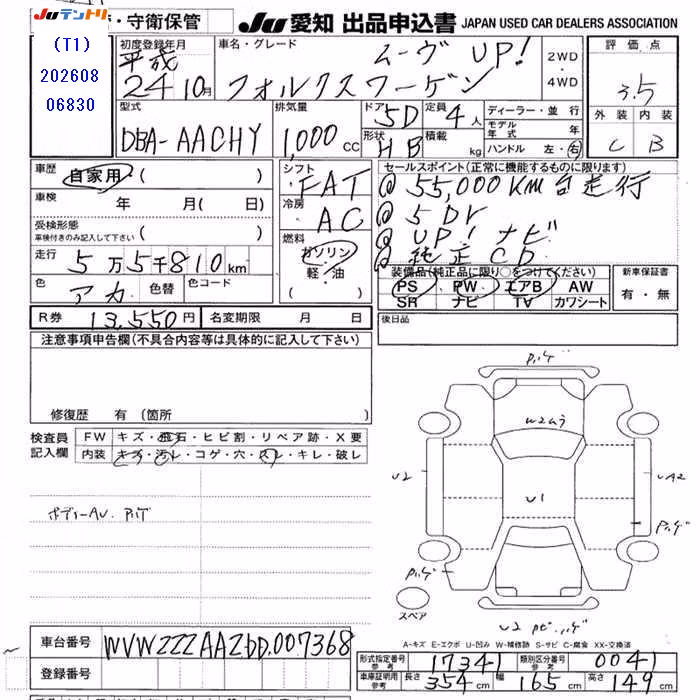 JUテントリ ・守衛保管 JU 愛知 出品申込書 JAPAN USED CAR DEALERS ASSOCIATION
(T1)
202608
06830
初度登録年月 車名・グレード 評価点
平成 ムーヴ UP! 2WD
24 10月 フォルクスワーゲン 4WD 3.5
型式 排気量 ドア 5D 定員 4人 ディーラー・並行 外装 内装
モデル年式 年
DBA-AACHY 1,000cc 形状 HB 積載 kg ハンドル 左・右 C B
車歴 自家用 ( )
シフト FAT
セールスポイント(正常に機能するものに限ります)
@ 55,000Km台走行
@ 5Dr
@ UP!ナビ
@ 純正CD
車検 年 月( 日)
冷房 AC
受検形態
車検付きのみ記入して下さい ( )
燃料 ガソリン・軽・油
( )
走行 5万5千810km
色 アカ 色替 色コード
装備品(純正品に限り○をつけてください) 新車保証書
PS PW エアB AW 有・無
SR ナビ TV カワシート
R券 13,550円 名変期限 月 日
後日品
注意事項申告欄(不具合内容等は具体的に記入して下さい)
修復歴 有(箇所
検査員 FW キズ・飛石・ヒビ割・リペア跡・X要
記入欄 内装 キズ・汚レ・コゲ・穴・スレ・キレ・破レ
U2
U1
UA2
スペア
A-キズ E-エクボ U-凹み W-補修跡 S-サビ C-腐食 XX-交換済
車台番号 WVWZZZAAZbD.007368
登録番号
形式指定番号 参考 17341 類別区分番号 参考 0041
車庫証明用 参考 長さ 354cm 幅 165cm 高さ 149cm